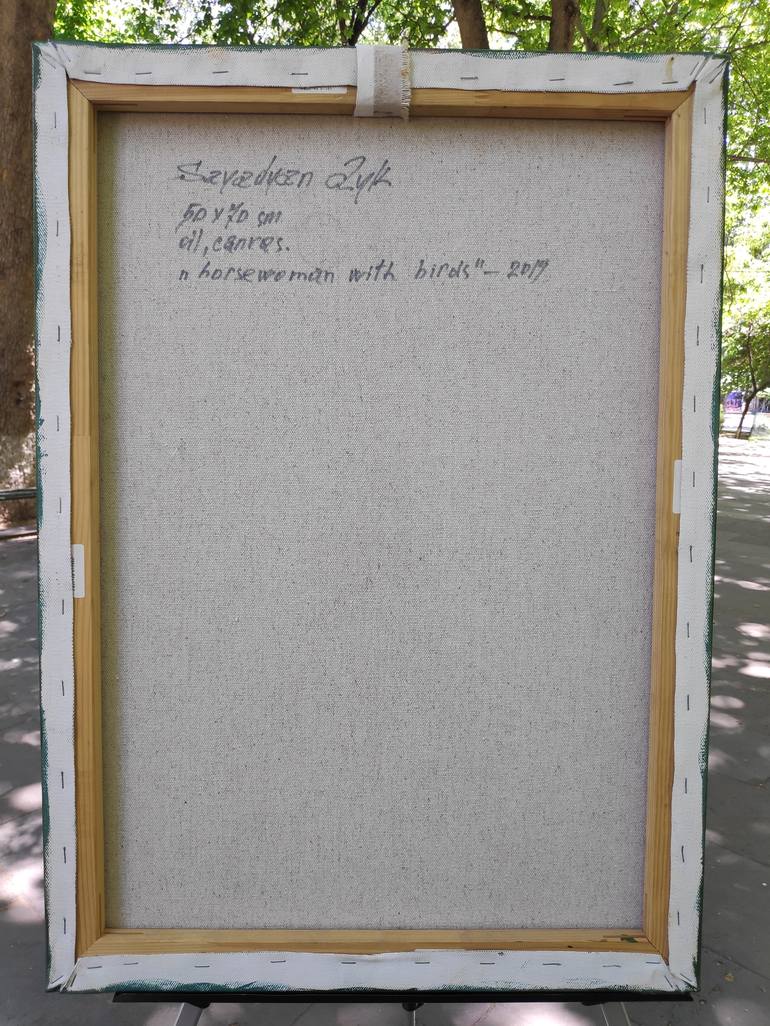 Sayadyan Zyk
50 x 70 sm
oil, canvas.
"horsewoman with birds" - 2019